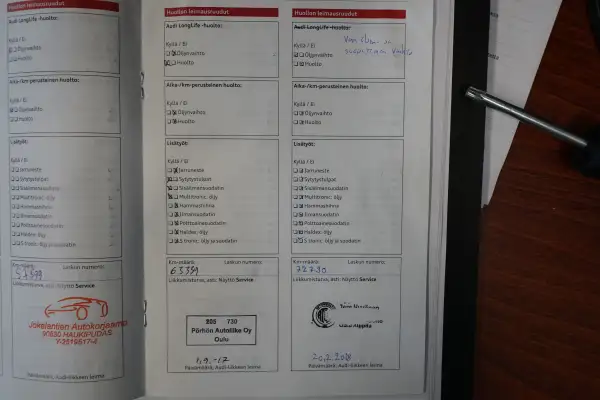 Huollon leimausruudut
Audi LongLife -huolto:
Kyllä / Ei
Öljynvaihto
Huolto
Aika-/km-perusteinen huolto:
Kyllä / Ei
Öljynvaihto
Huolto
Lisätyöt:
Kyllä / Ei
Jarruneste
Sytytystulpat
Sisäilmansuodatin
Multitronic, öljy
Hammashihna
Ilmansuodatin
Polttoainesuodatin
Haldex, öljy
S tronic, öljy ja suodatin
Km-määrä: Laskun numero:
Liikkumisturva, astr. Näyttö Service
Jokelantien Autokorjaamo
90830 HAUKIPUDAS
Päivämäärä, Audi-liikkeen leima
Huollon leimausruudut
Audi LongLife -huolto:
Kyllä / Ei
Öljynvaihto
Huolto
Aika-/km-perusteinen huolto:
Kyllä / Ei
Öljynvaihto
Huolto
Lisätyöt:
Kyllä / Ei
Jarruneste
Sytytystulpat
Sisäilmansuodatin
Multitronic, öljy
Hammashihna
Ilmansuodatin
Polttoainesuodatin
Haldex, öljy
S tronic, öljy ja suodatin
Km-määrä: Laskun numero:
63359
Liikkumisturva, astr. Näyttö Service
205 730
Pörhön Autoliike Oy
Oulu
1.9.-17
Päivämäärä, Audi-liikkeen leima
Huollon leimausruudut
Audi LongLife -huolto:
Kyllä / Ei
Öljynvaihto
Huolto
Aika-/km-perusteinen huolto:
Kyllä / Ei
Öljynvaihto
Huolto
Lisätyöt:
Kyllä / Ei
Jarruneste
Sytytystulpat
Sisäilmansuodatin
Multitronic, öljy
Hammashihna
Ilmansuodatin
Polttoainesuodatin
Haldex, öljy
S tronic, öljy ja suodatin
Km-määrä: Laskun numero:
72730
Liikkumisturva, astr. Näyttö Service
20.2.2018
Päivämäärä, Audi-liikkeen leima